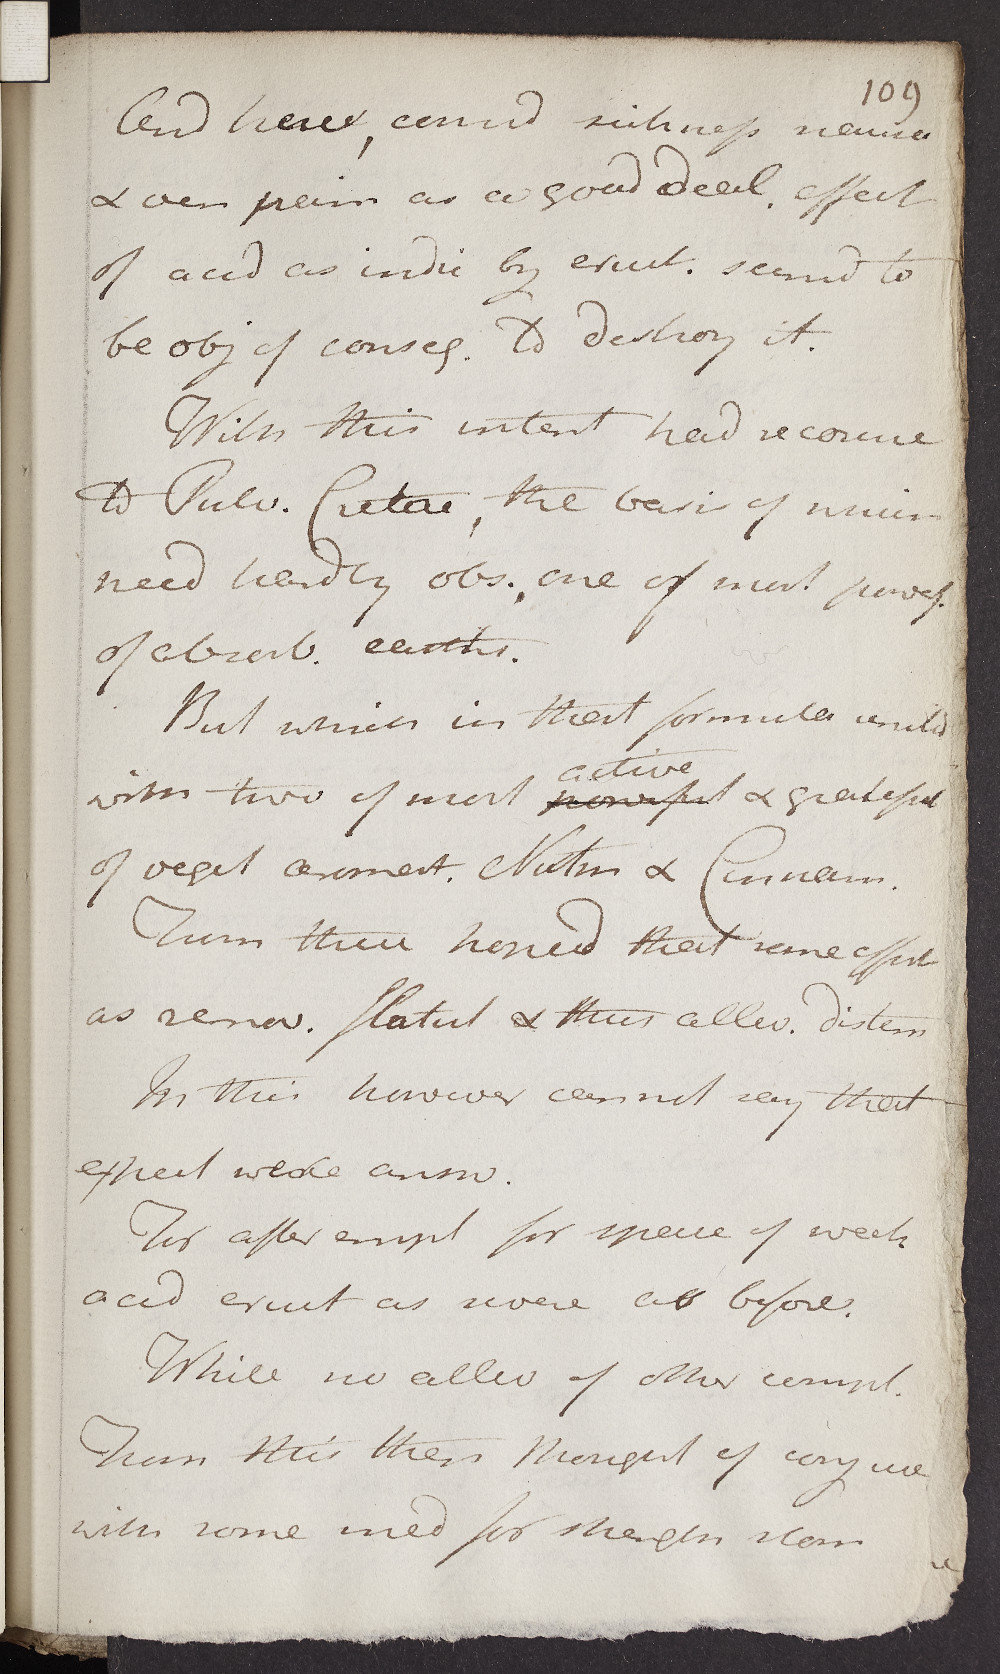 109
And here, consid sickness nausea
& even pain as a good deal. effect
of acid as indic by eruct. seemd to
be obj of conseq. to destroy it.
With this intent had recourse
to Pulv. Cretac, the basis of which
need hardly obs., one of most powef.
of absorb. earths.
But which in that formula united
with two of most powerful active & grateful
of veget aromat. Nutm & Cinnam.
From these hoped that some effect
as remov. flatul & thus allev. distem
In this however cannot say that
expect were answ.
For after empl for space of week
acid eruct as severe as before.
While no allev of other compl.
From this then thought of conj use
with some med for strength stom